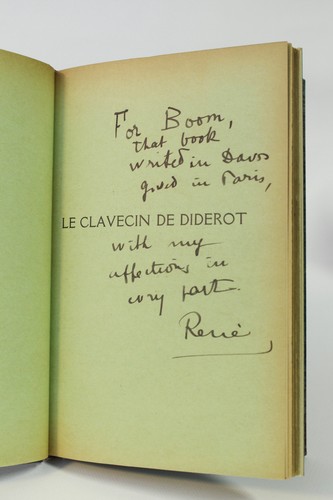 For Boom,
that book
writed in Davos
gived in Paris,
LE CLAVECIN DE DIDEROT
with my
affections in
evry part.
René